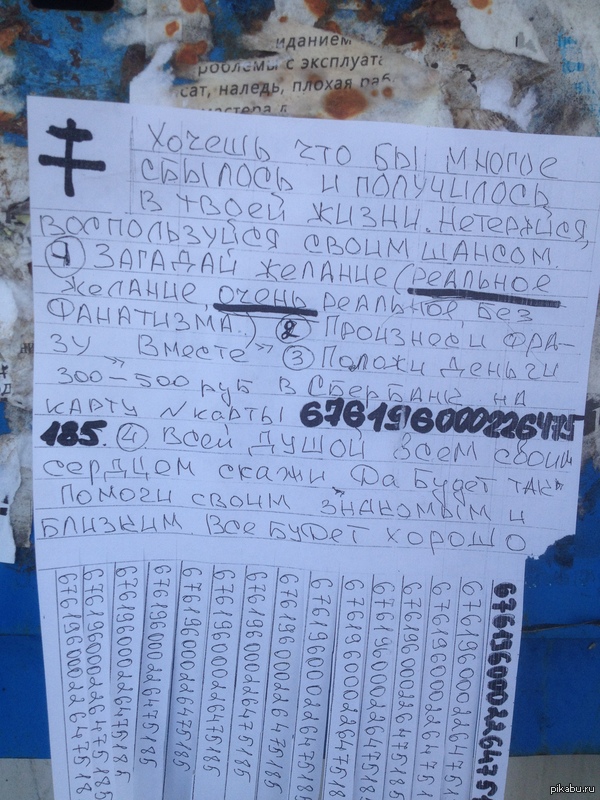 иданием
роблемы с эксплуата
сат, наледь, плохая раб
мастера д
Хочешь что бы многое
сбылось и получилось
в твоей жизни. Нетеряйся,
воспользуйся своим шансом.
1 Загадай желание (реальное
желание, очень реальное без
фанатизма.) 2 Произнеси фра-
зу "Вместе" 3 Положи деньги
300–500 руб в Сбербанк на
карту N карты 6761960002264751
185. 4 Всей душой всем своим
сердцем скажи „Да будет так"
Помоги своим знакомым и
близким все будет хорошо
676196000226475185
676196000226475185
676196000226475185
676196000226475185
676196000226475185
676196000226475185
676196000226475185
676196000226475185
676196000226475185
67619600022647518
67619600022647518
67619600022647518
67619600022647518
6761960002264751
pikabu.ru